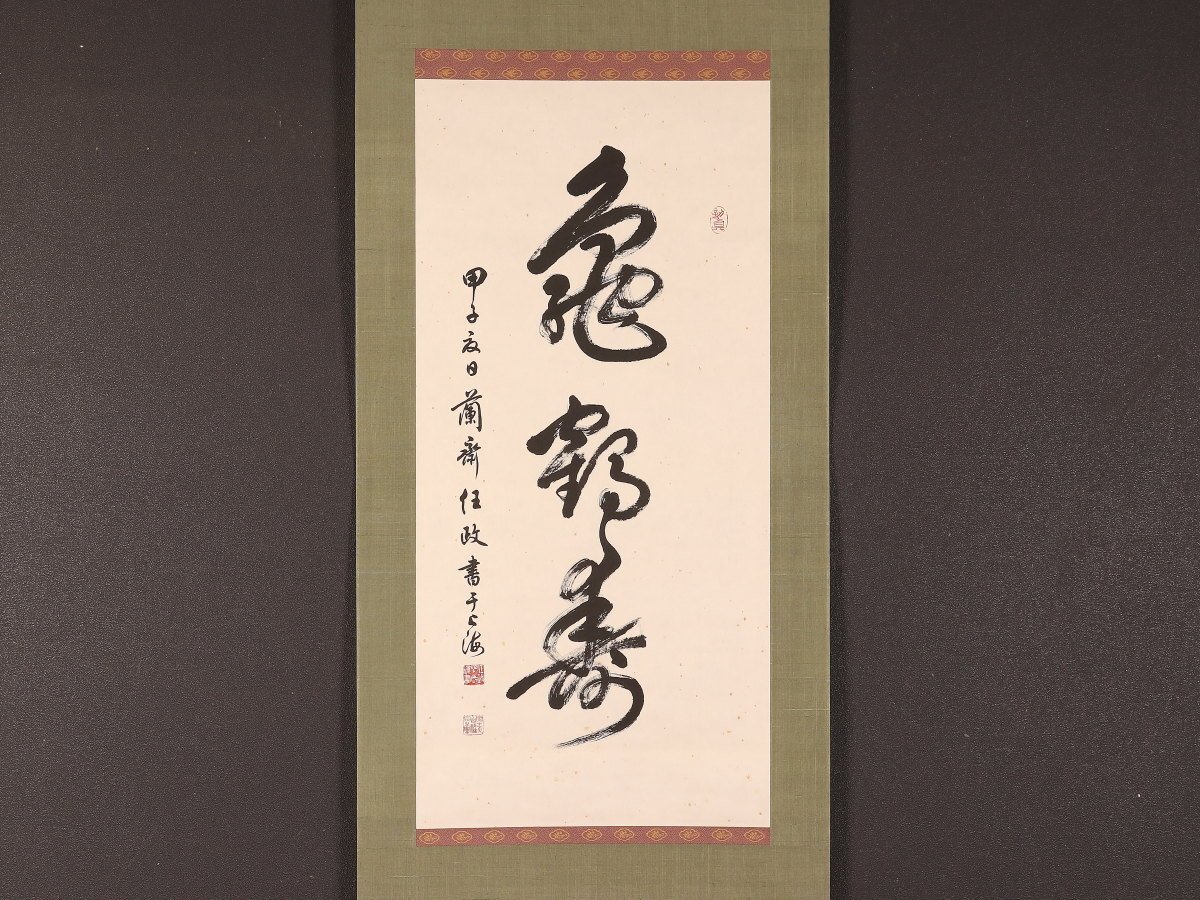 龜鶴壽
甲子夏日蘭齋任政書于上海